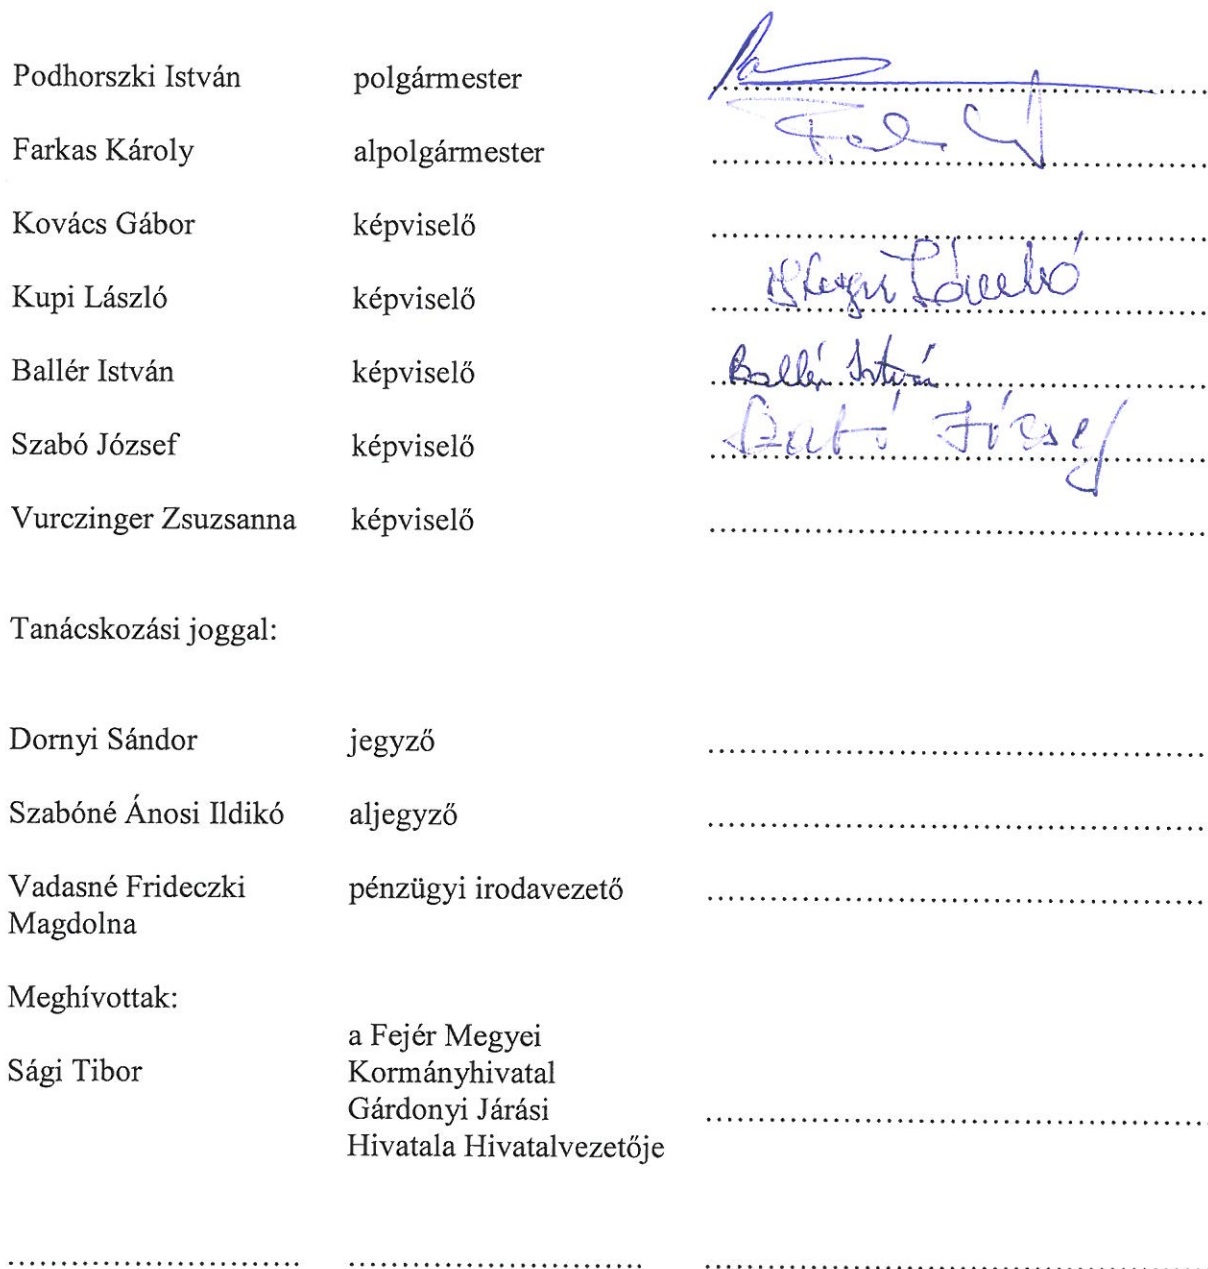 Podhorszki István polgármester ........................................
Farkas Károly alpolgármester ........................................
Kovács Gábor képviselő ........................................
Kupi László képviselő László ........................................
Ballér István képviselő Ballér István ........................................
Szabó József képviselő Szabó József ........................................
Vurczinger Zsuzsanna képviselő ........................................
Tanácskozási joggal:
Dornyi Sándor jegyző ........................................
Szabóné Ánosi Ildikó aljegyző ........................................
Vadasné Frideczki pénzügyi irodavezető ........................................
Magdolna
Meghívottak:
a Fejér Megyei
Sági Tibor Kormányhivatal
Gárdonyi Járási ........................................
Hivatala Hivatalvezetője
............................ ............................ ........................................